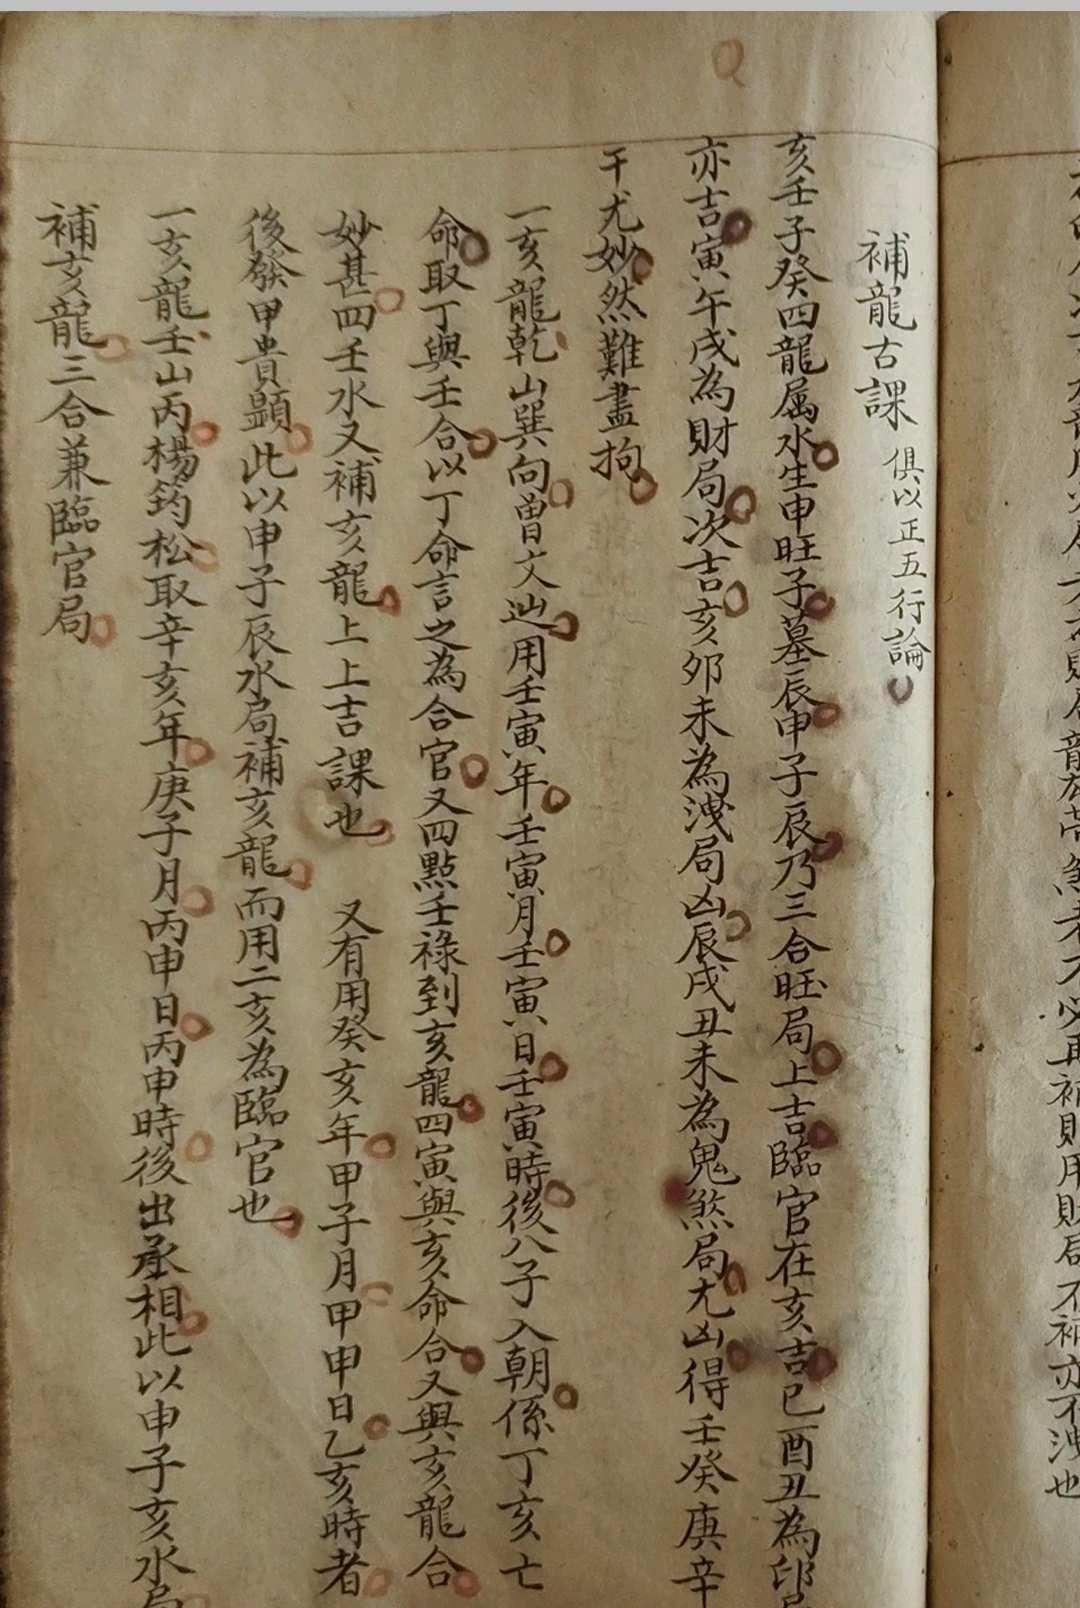 補龍古課 俱以正五行論
亥壬子癸四龍属水生申旺子墓辰申子辰乃三合旺局上吉臨官在亥吉巳酉丑為印局
亦吉寅午戌為財局次吉亥卯未為洩局凶辰戌丑未為鬼煞局尤凶得壬癸庚辛
干尤妙然難盡拘
一亥龍乾山巽向曽文辿用壬寅年壬寅月壬寅日壬寅時後八子入朝係丁亥亡
命取丁與壬合以丁命言之為合官又四點壬祿到亥龍四寅與亥命合又與亥龍合
妙甚四壬水又補亥龍上上吉課也 又有用癸亥年甲子月甲申日乙亥時者
後發甲貴顕此以申子辰水局補亥龍而用二亥為臨官也
一亥龍壬山丙楊筠松取辛亥年庚子月丙申日丙申時後出承相此以申子亥水局
補亥龍三合兼臨官局